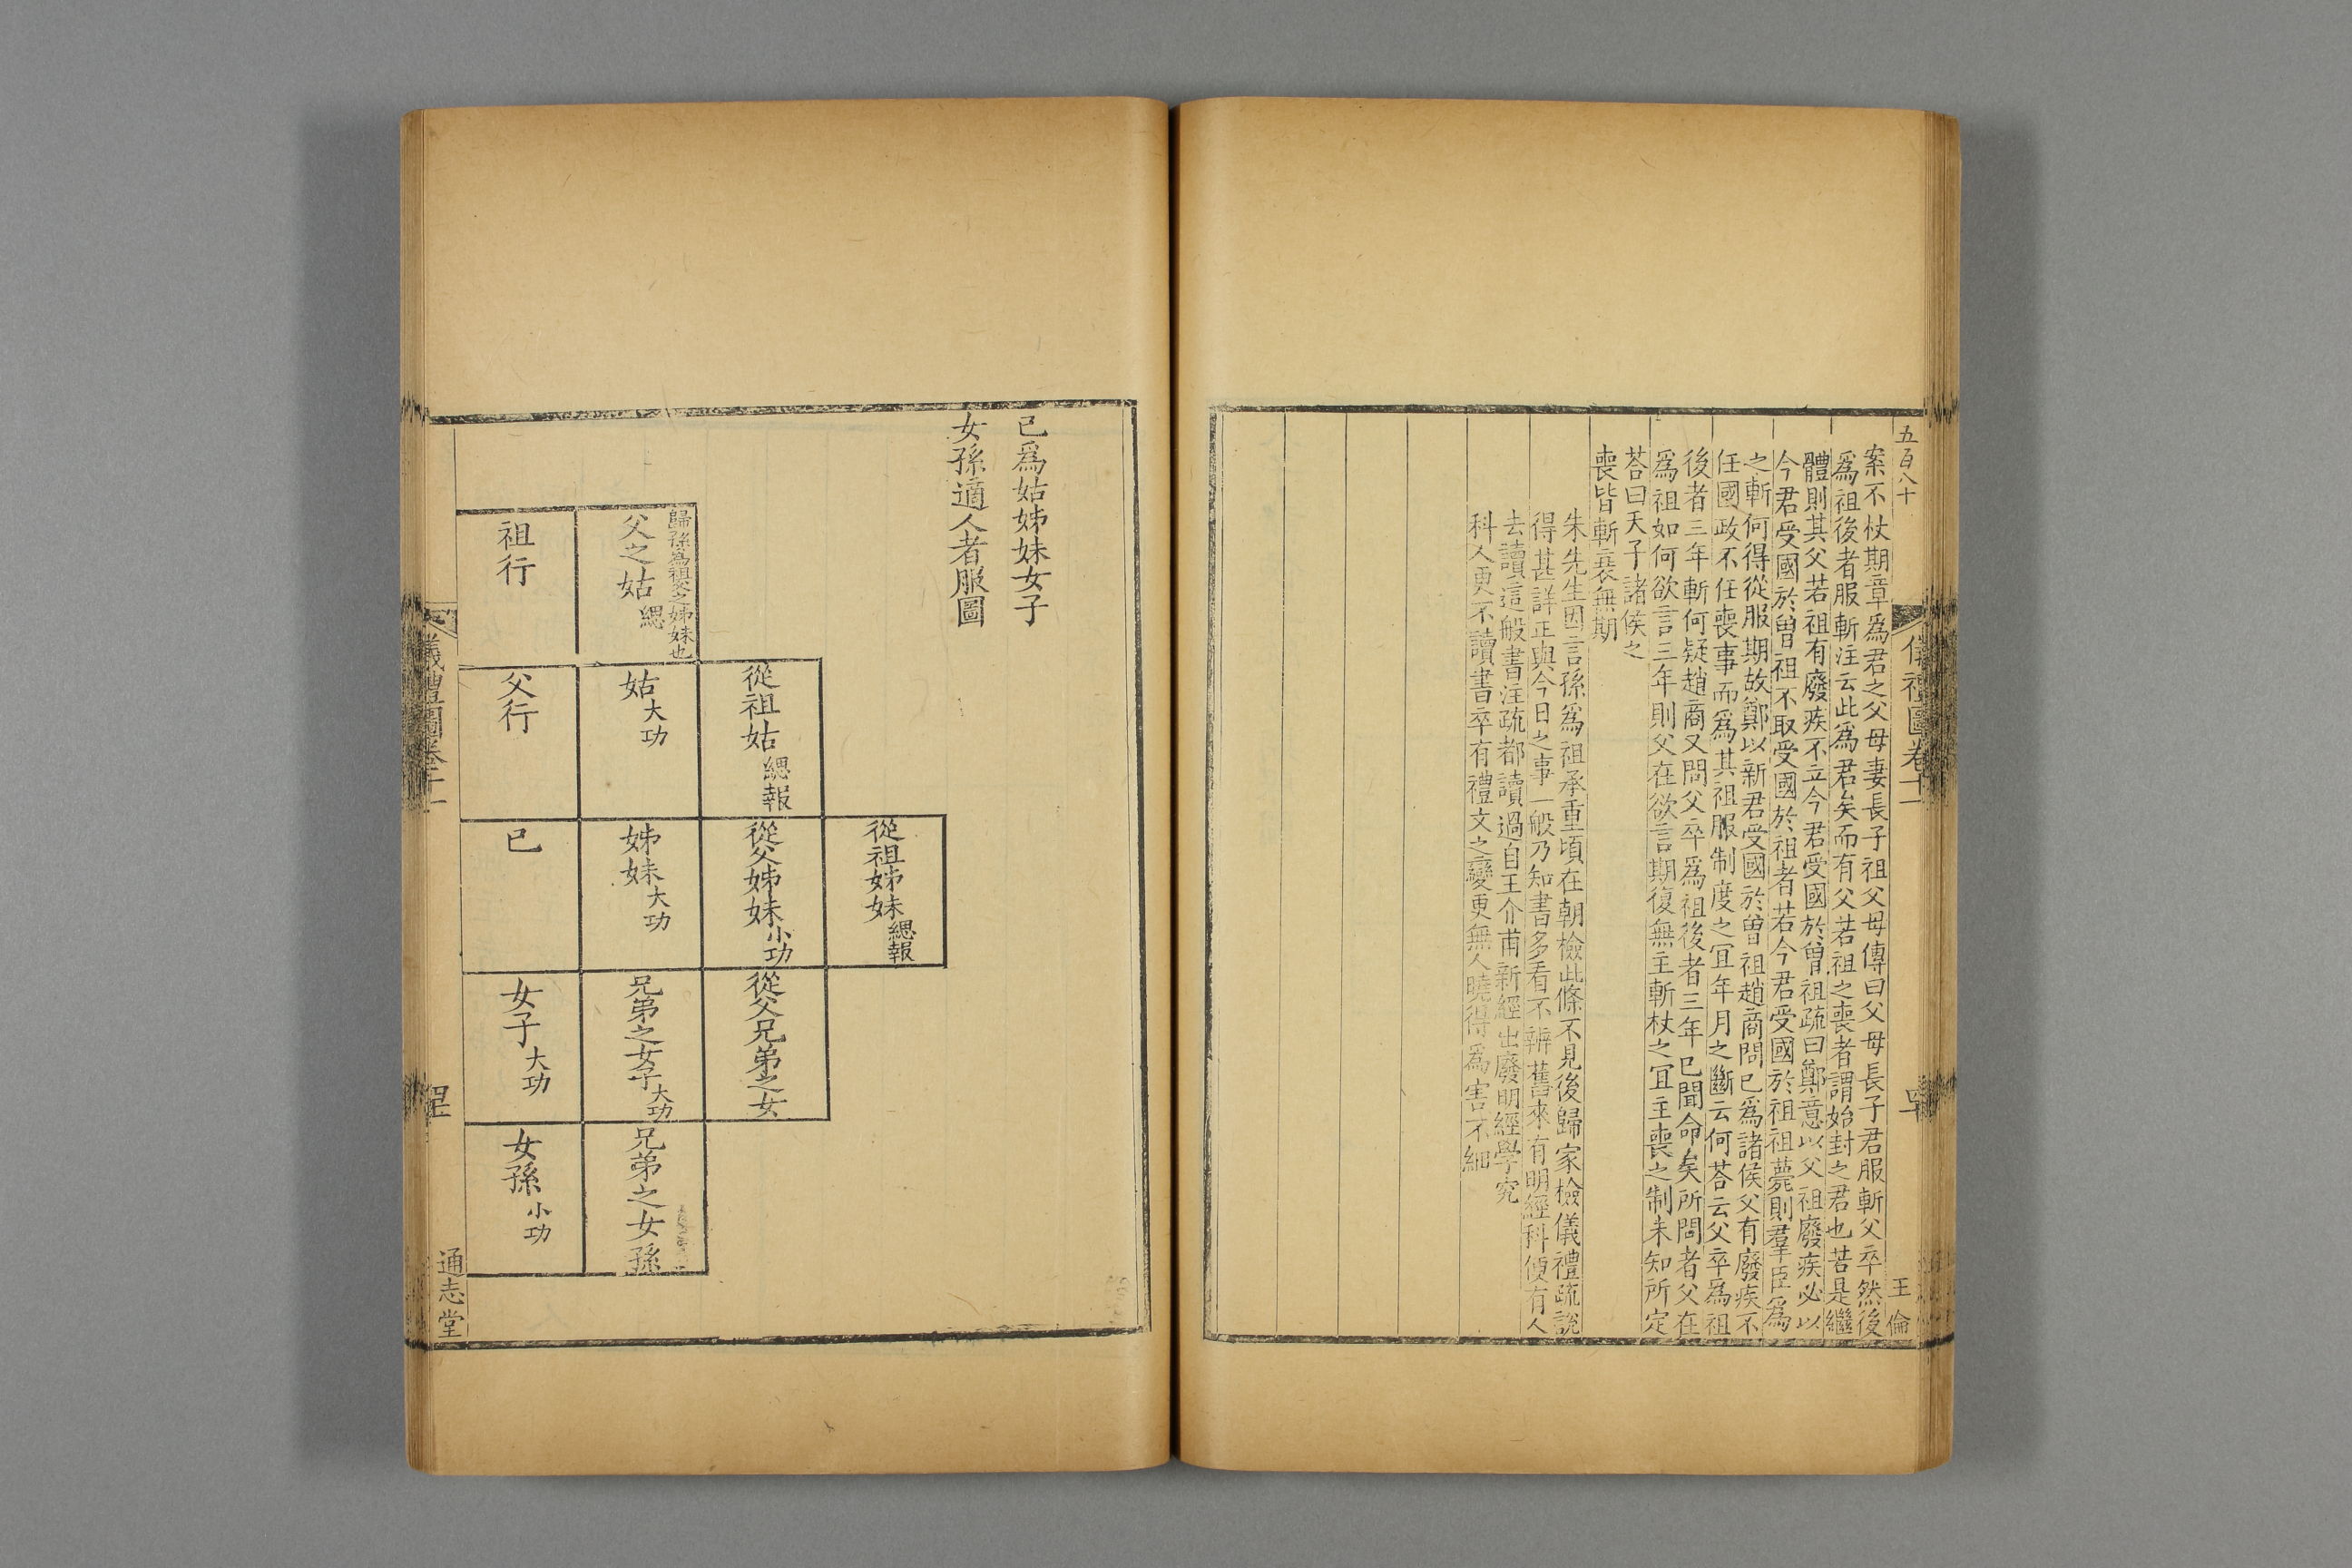 五百八十
儀禮圖卷十一
四十
王倫
案不杖期章爲君之父母妻長子祖父母傳曰父母長子君服斬父卒然後
爲祖後者服斬注云此爲君矣而有父若祖之喪者謂始封之君也若是繼
體則其父若祖有廢疾不立今君受國於曾祖疏曰鄭意以父祖廢疾必以
今君受國於曾祖不取受國於祖者若今君受國於祖祖薨則羣臣爲
之斬何得從服期故鄭以新君受國於曾祖趙商問已爲諸侯父有廢疾不
任國政不任喪事而爲其祖服制度之宜年月之斷云何荅云父卒爲祖
後者三年斬何疑趙商又問父卒爲祖後者三年已聞命矣所問者父在
爲祖如何欲言三年則父在欲言期復無主斬杖之宜主喪之制未知所定
荅曰天子諸侯之
喪皆斬衰無期
朱先生因言孫爲祖承重頃在朝檢此條不見後歸家檢儀禮疏說
得甚詳正與今日之事一般乃知書多看不辨舊來有明經科便有人
去讀這般書注疏都讀過自王介甫新經出廢明經學究
科人更不讀書卒有禮文之變更無人曉得爲害不細
已爲姑姊妹女子
女孫適人者服圖
從祖姊妹緦報
從祖姑緦報
從父姊妹小功
從父兄弟之女
歸孫爲祖父之姊妹也
父之姑緦
姑大功
姊妹大功
兄弟之女子大功
兄弟之女孫
祖行
父行
已
女子大功
女孫小功
儀禮圖卷十一
通志堂